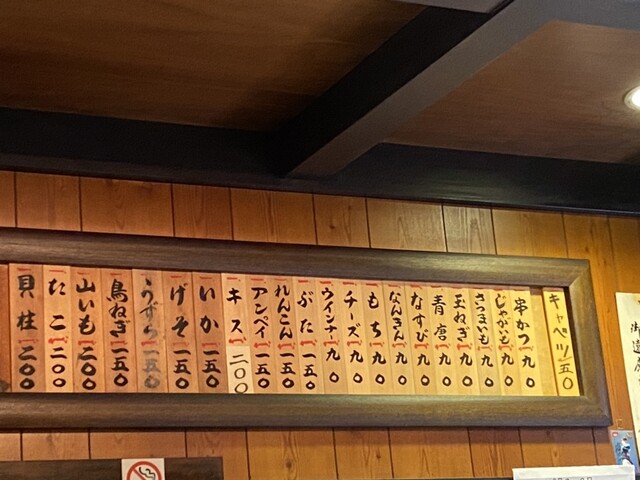 キャベツ 一五〇
串かつ 一九〇
じゃがいも 一九〇
さつまいも 一九〇
玉ねぎ 一九〇
青唐 一九〇
なすび 一九〇
なんきん 一九〇
もち 一九〇
チーズ 一九〇
ウインナー 一九〇
ぶた 一五〇
れんこん 一五〇
アンペイ 一五〇
キス 二〇〇
いか 一五〇
げそ 一五〇
うずら 一五〇
鳥ねぎ 一五〇
山いも 二〇〇
たこ 二〇〇
貝柱 二〇〇